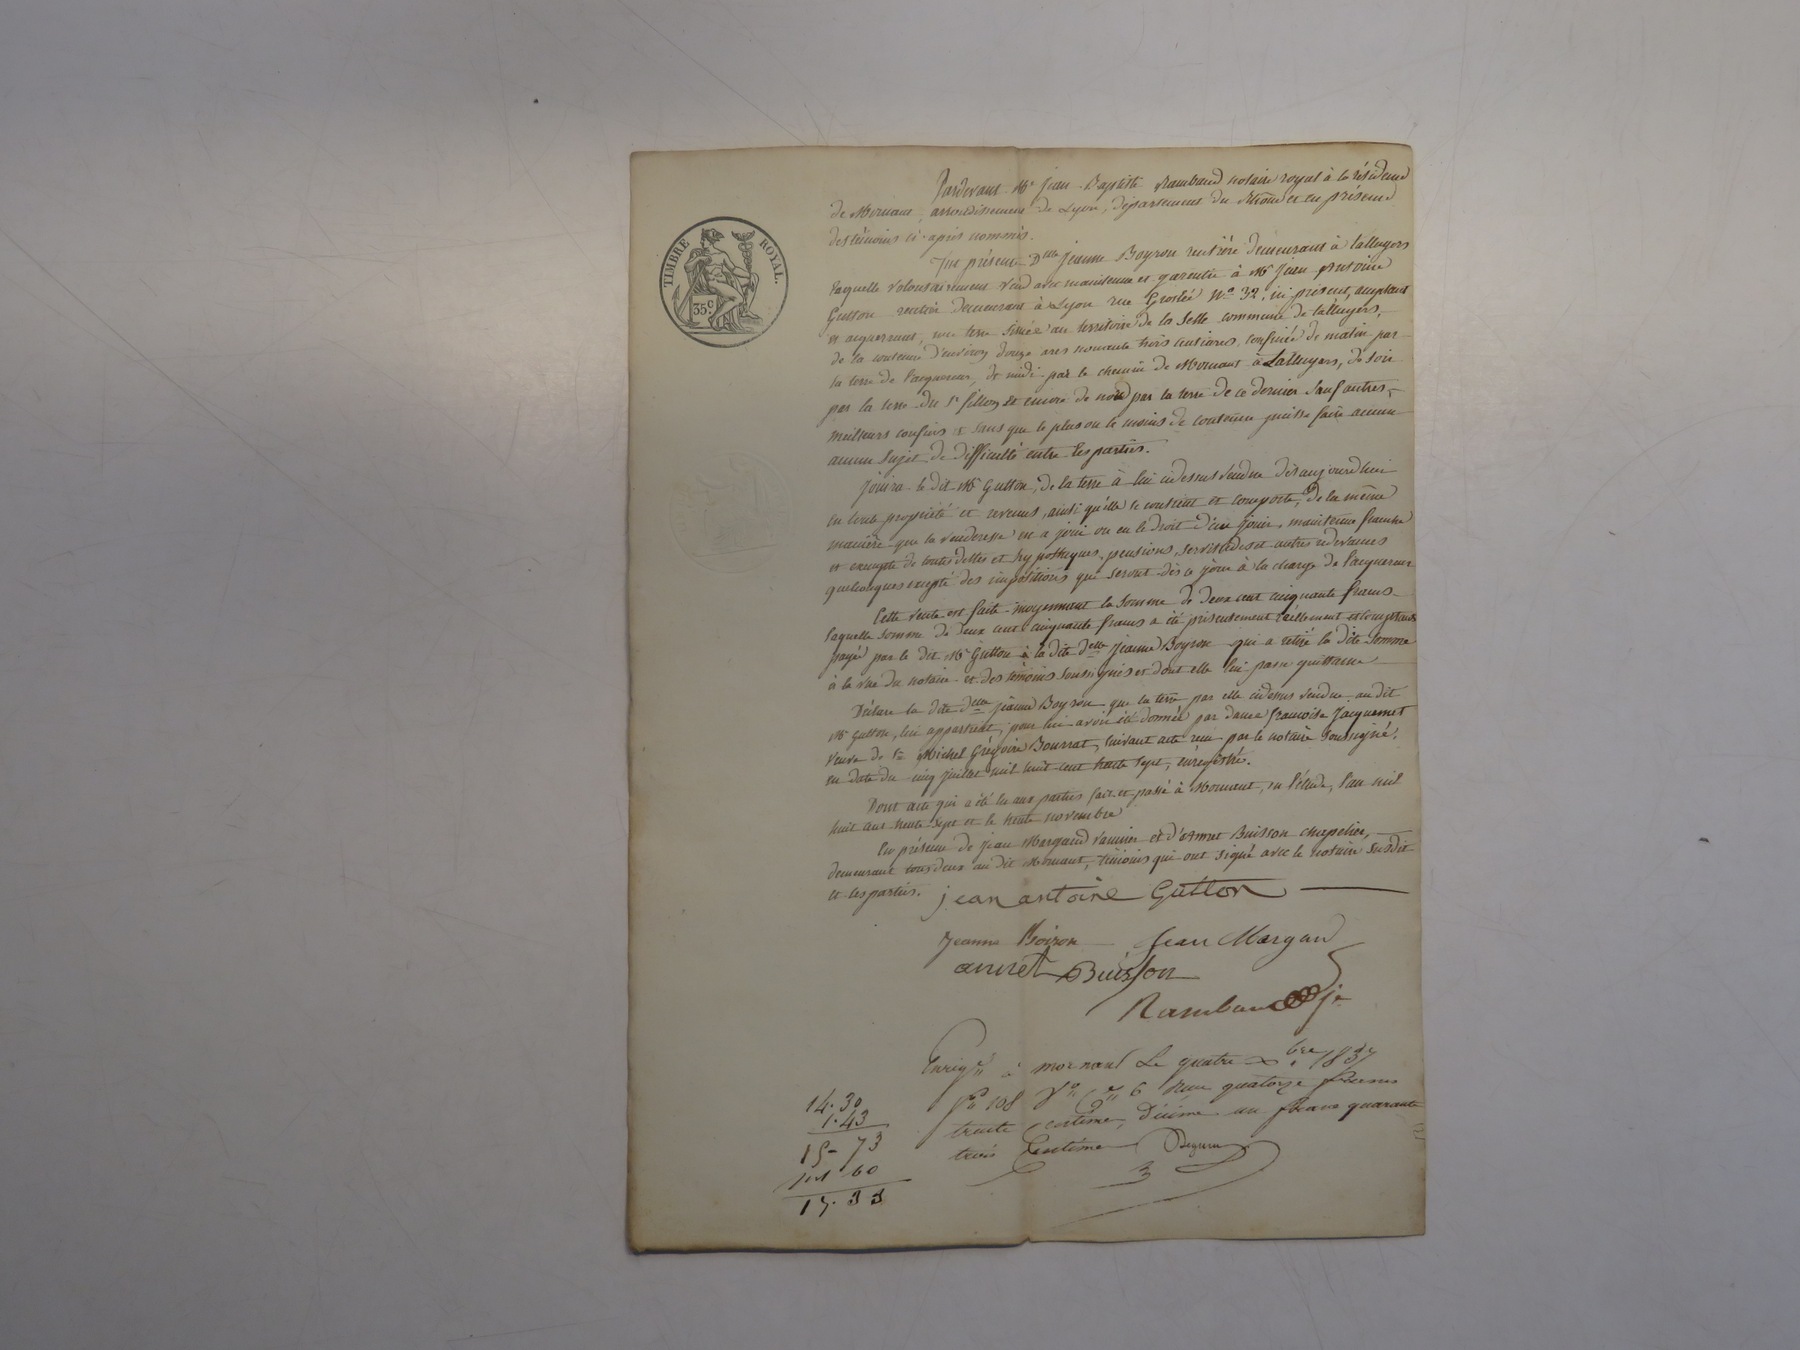 TIMBRE ROYAL.
35.c
Pardevant Me Jean Baptiste Rambaud notaire royal à la résidence
de Mornant, arrondissement de Lyon, département du Rhône et en présence
des témoins ci-après nommés.
Fut présente Dlle jeanne Boyron rentière demeurant à talluyers
laquelle volontairement vend avec maintenue et garentie à Mr Jean Antoine
Gutton rentier demeurant à Lyon rue Groslée No 32, ici présent, acceptant
et acquerrant, une terre située au territoire de la Selle commune de talluyers,
de la contenue d'environ douze ares nonante trois centiares, confinée de matin par
la terre de l'acquereur, de midi par le chemin de Mornant à talluyers, de soir
par la terre du sr fillon et encore de nord par la terre de ce dernier sauf autres
meilleurs confins et sans que le plus ou le moins de contenue puisse faire aucun
aucun sujet de difficulté entre les parties.
Jouira le dit Mr Gutton, de la terre à lui cidessus vendue dès aujourd'hui
en toute propriété et revenus, ainsi qu'elle se contient et comporte, de la même
manière que la venderesse en a joui ou eu le droit d'en jouir, maintenue franche
et exempte de toutes dettes et hypothèques, pensions, servitudes et autres redevances
quelconques excepté des impositions qui seront dès ce jour à la charge de l'acquereur
Cette vente est faite moyennant la somme de deux cent cinquante francs
laquelle somme de deux cent cinquante francs a été présentement réellement et comptant
payé par le dit Mr Gutton à la dite delle jeanne Boyron qui a retiré la dite somme
à la vue du notaire et des témoins soussignés et dont elle lui passe quittance
Déclare la dite delle jeanne Boyron que la terre par elle cidessus vendue au dit
Mr Gutton, lui appartient, pour lui avoir été donnée par dame françoise Jacquemet
veuve de sr Michel Grégoire Bourrat, suivant acte reçu par le notaire soussigné,
en date du cinq juillet mil huit cent trente sept, enregistré.
Dont acte qui a été lu aux parties fait et passé à Mornant, en l'étude, l'an mil
huit cent trente sept et le trente novembre
En présence de jean Margand vannier et d'annet Buisson chapelier,
demeurant tous deux au dit Mornant, témoins qui ont signé avec le notaire susdit
et les parties.
jean antoine Gutton
Jeanne Boiron Jean Margan
annet Buisson
Rambaud je
Enrig à mornant Le quatre xbre 1837
fo 108 vo Ce 6 Reçu quatorze francs
trente centime, Décime un franc quarante
trois Centime
14.30
1.43
15-73
1.60
17.33